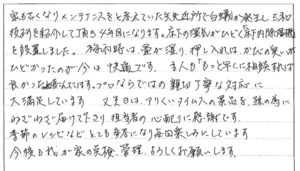 家も古くなりメンテナンスをと考えていた矢先近所で白蟻が発生し三和
を紹介して頂き5年目になります。床下の湿気がひどく床下内除湿機
を設置しました。梅雨時は、畳が湿り押し入れは、かびの臭いが
ひどかったのが今は快適です。主人も"もっと早くに相談すれば
良かった"と喜んでいます。プロならではの親切丁寧な対応に
大満足しています 又先日は、アリクイタイムスの景品を、孫の為に
わざわざ届けて下さり担当者の心配りに感謝です。
季節のレシピなどとても参考になり毎回楽しみにしています
今後も我が家の点検、管理、よろしくお願いします。